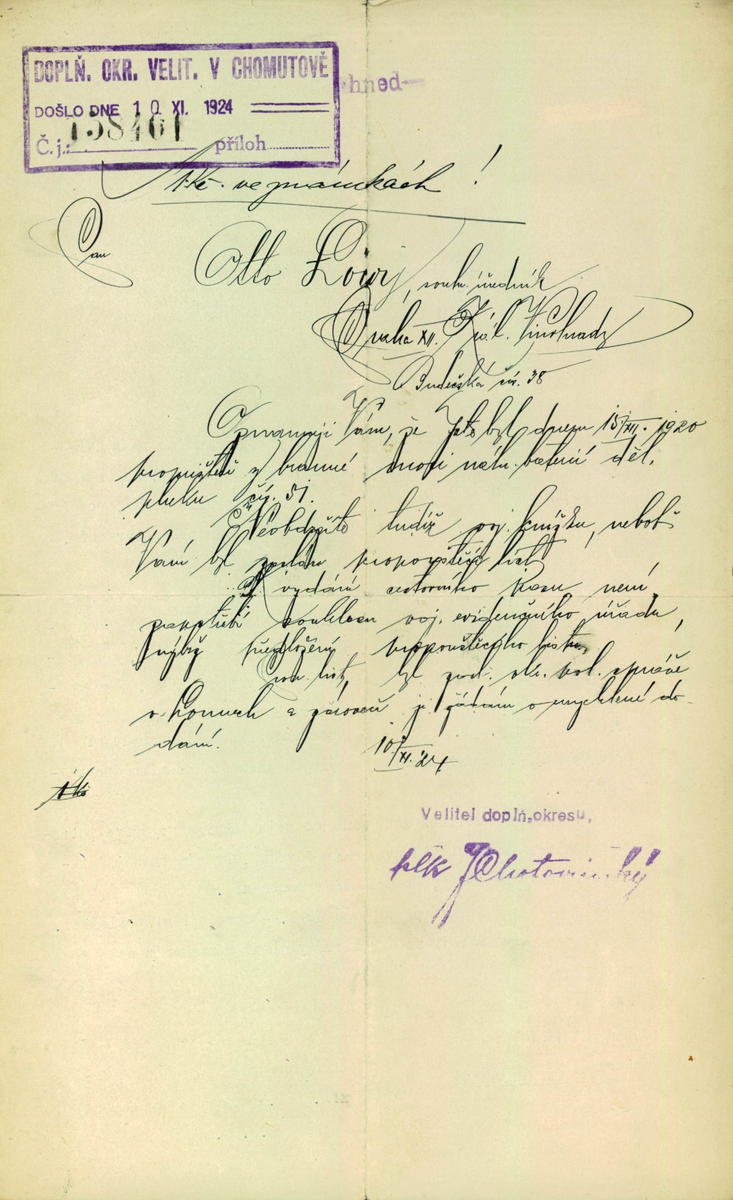 DOPLŇ. OKR. VELIT. V CHOMUTOVĚ
DOŠLO DNE 10 XI. 1924
Č. j.: 158461 příloh
hned
1 Kč. ve známkách!
Pan
Otto Löwy, soukr. úředník
Praha XII. Král. Vinohrady
Budečská čís. 38
Oznamuji Vám, že jste byl dnem 15/XII. 1920
propuštěn z branné moci náhr. baterií děl.
pluku čís. 51.
Neobdržíte tudíž voj. knížku, neboť
Vám byl zaslán propouštěcí list.
K vydání cestovního pasu není
zapotřebí souhlasu voj. evidenčního úřadu,
nýbrž předložení propouštěcího listu.
list, okr. pol. správě
v Lounech a zároveň ji žádám o urychlené do-
dání.
10/XI. 24
Velitel doplň. okresu,
plk